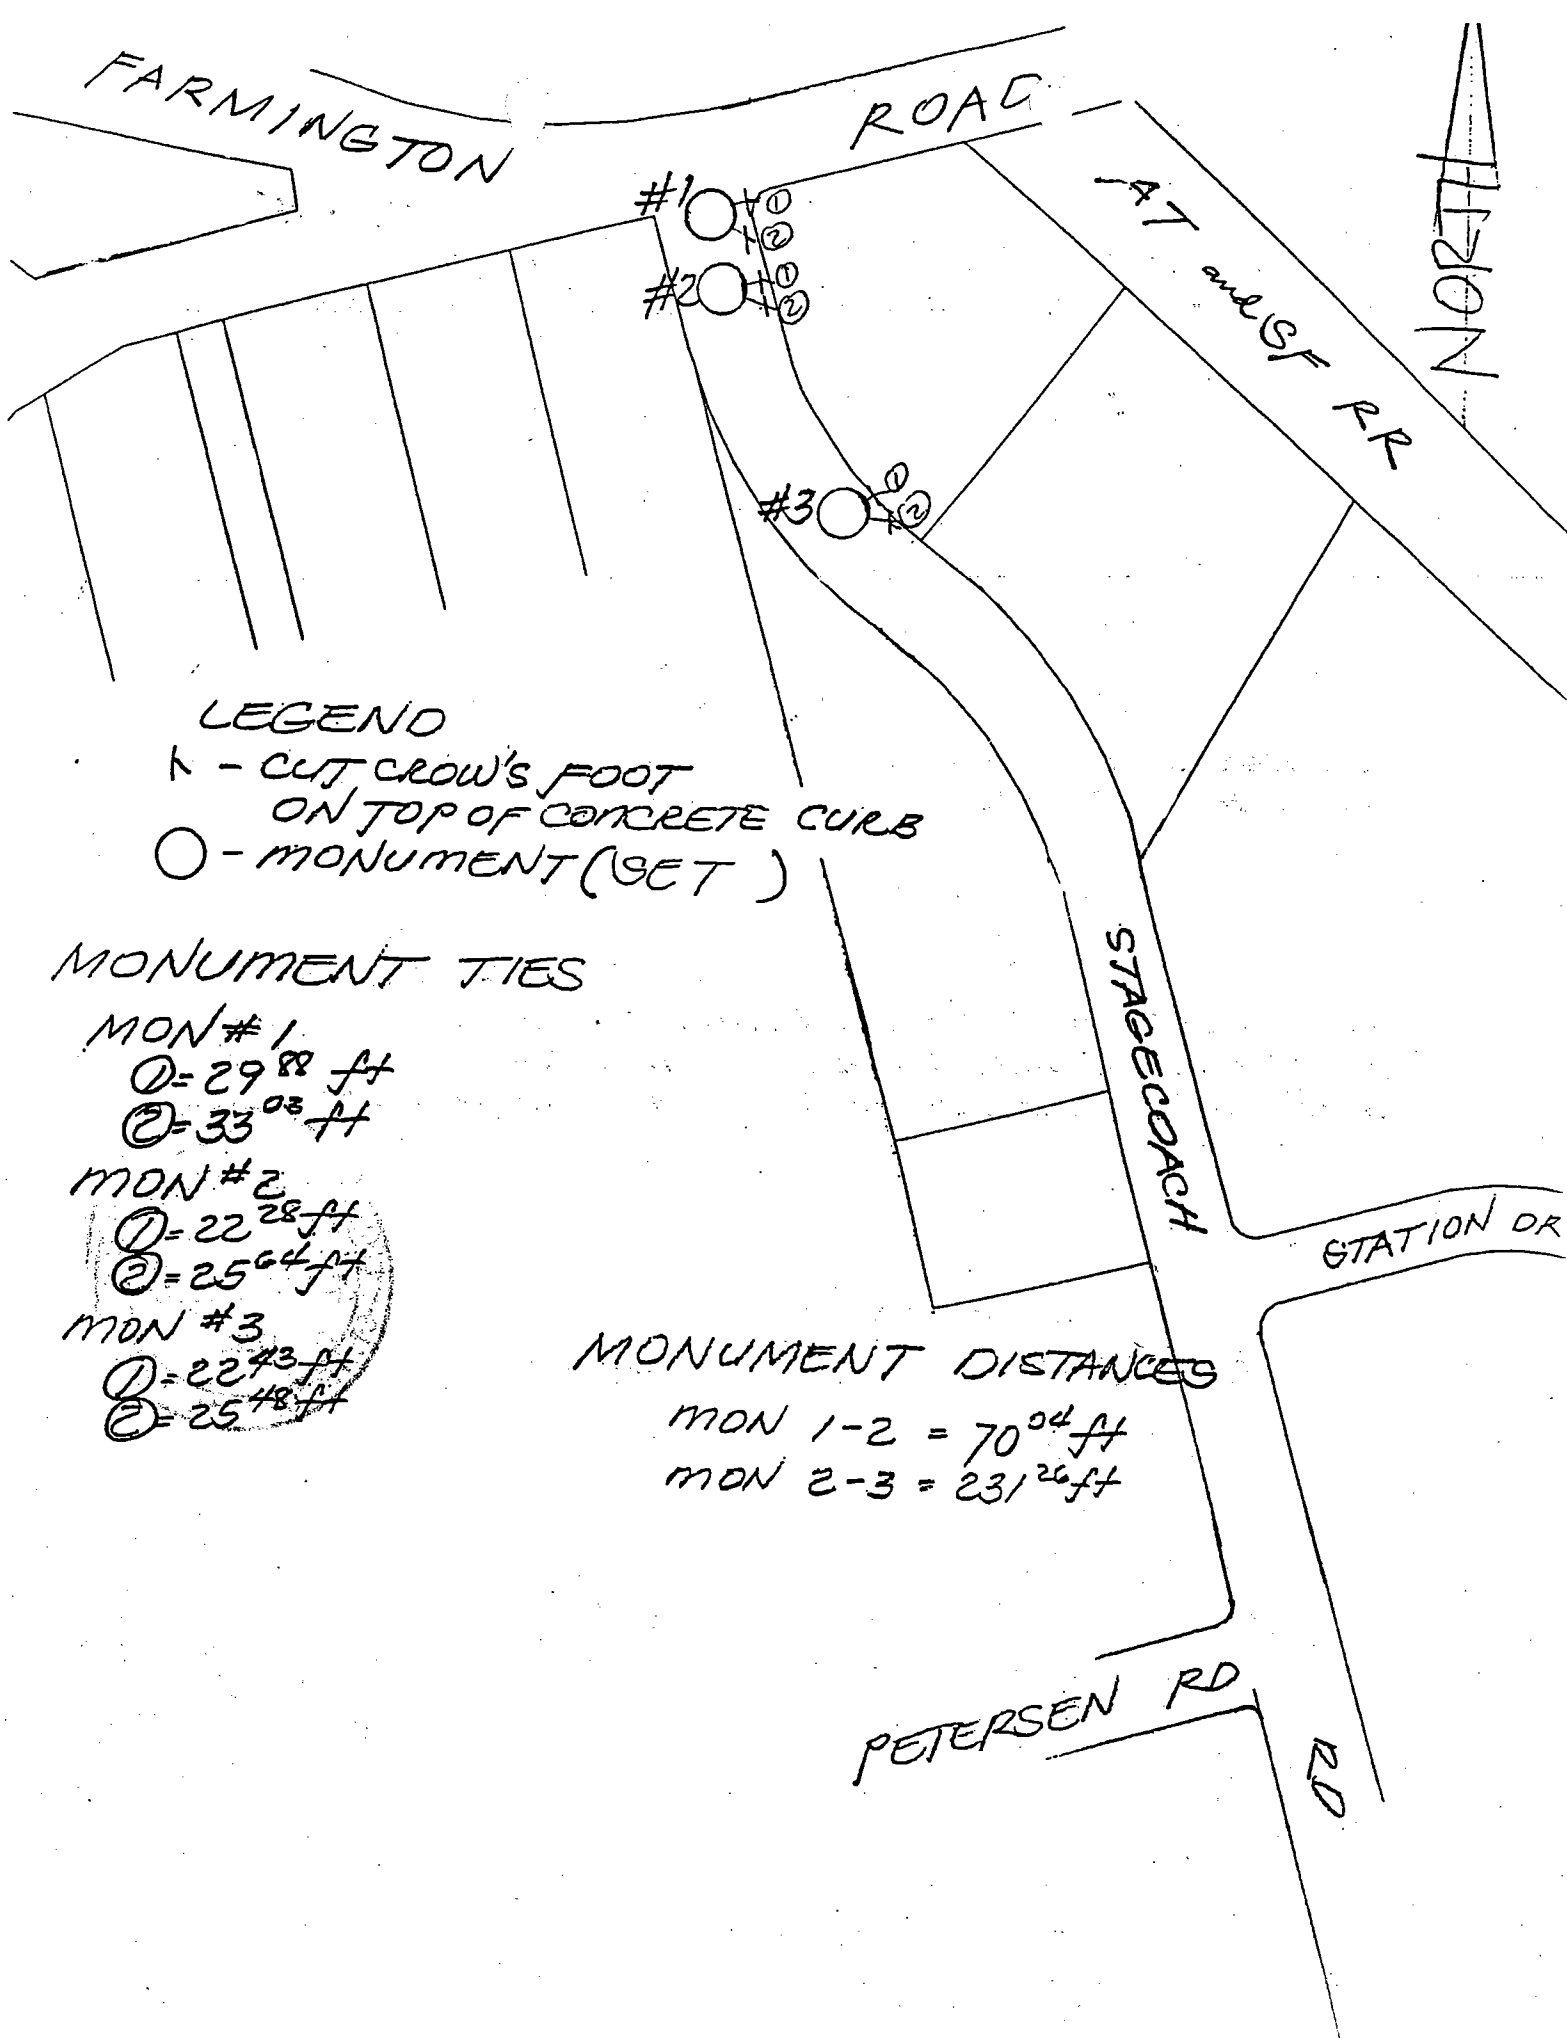 FARMINGTON ROAD
NORTH
AT and SF RR
#1 ① ②
#2 ① ②
#3 ① ②
LEGEND
- CUT CROW'S FOOT
ON TOP OF CONCRETE CURB
- MONUMENT (SET )
MONUMENT TIES
MON # 1
①= 29 88 ft
②= 33 03 ft
MON #2
①= 22 28 ft
②= 25 64 ft
MON #3
①= 22 43 ft
②= 25 48 ft
STAGECOACH RD
STATION DR
MONUMENT DISTANCES
MON 1-2 = 70 04 ft
MON 2-3 = 231 26 ft
PETERSEN RD